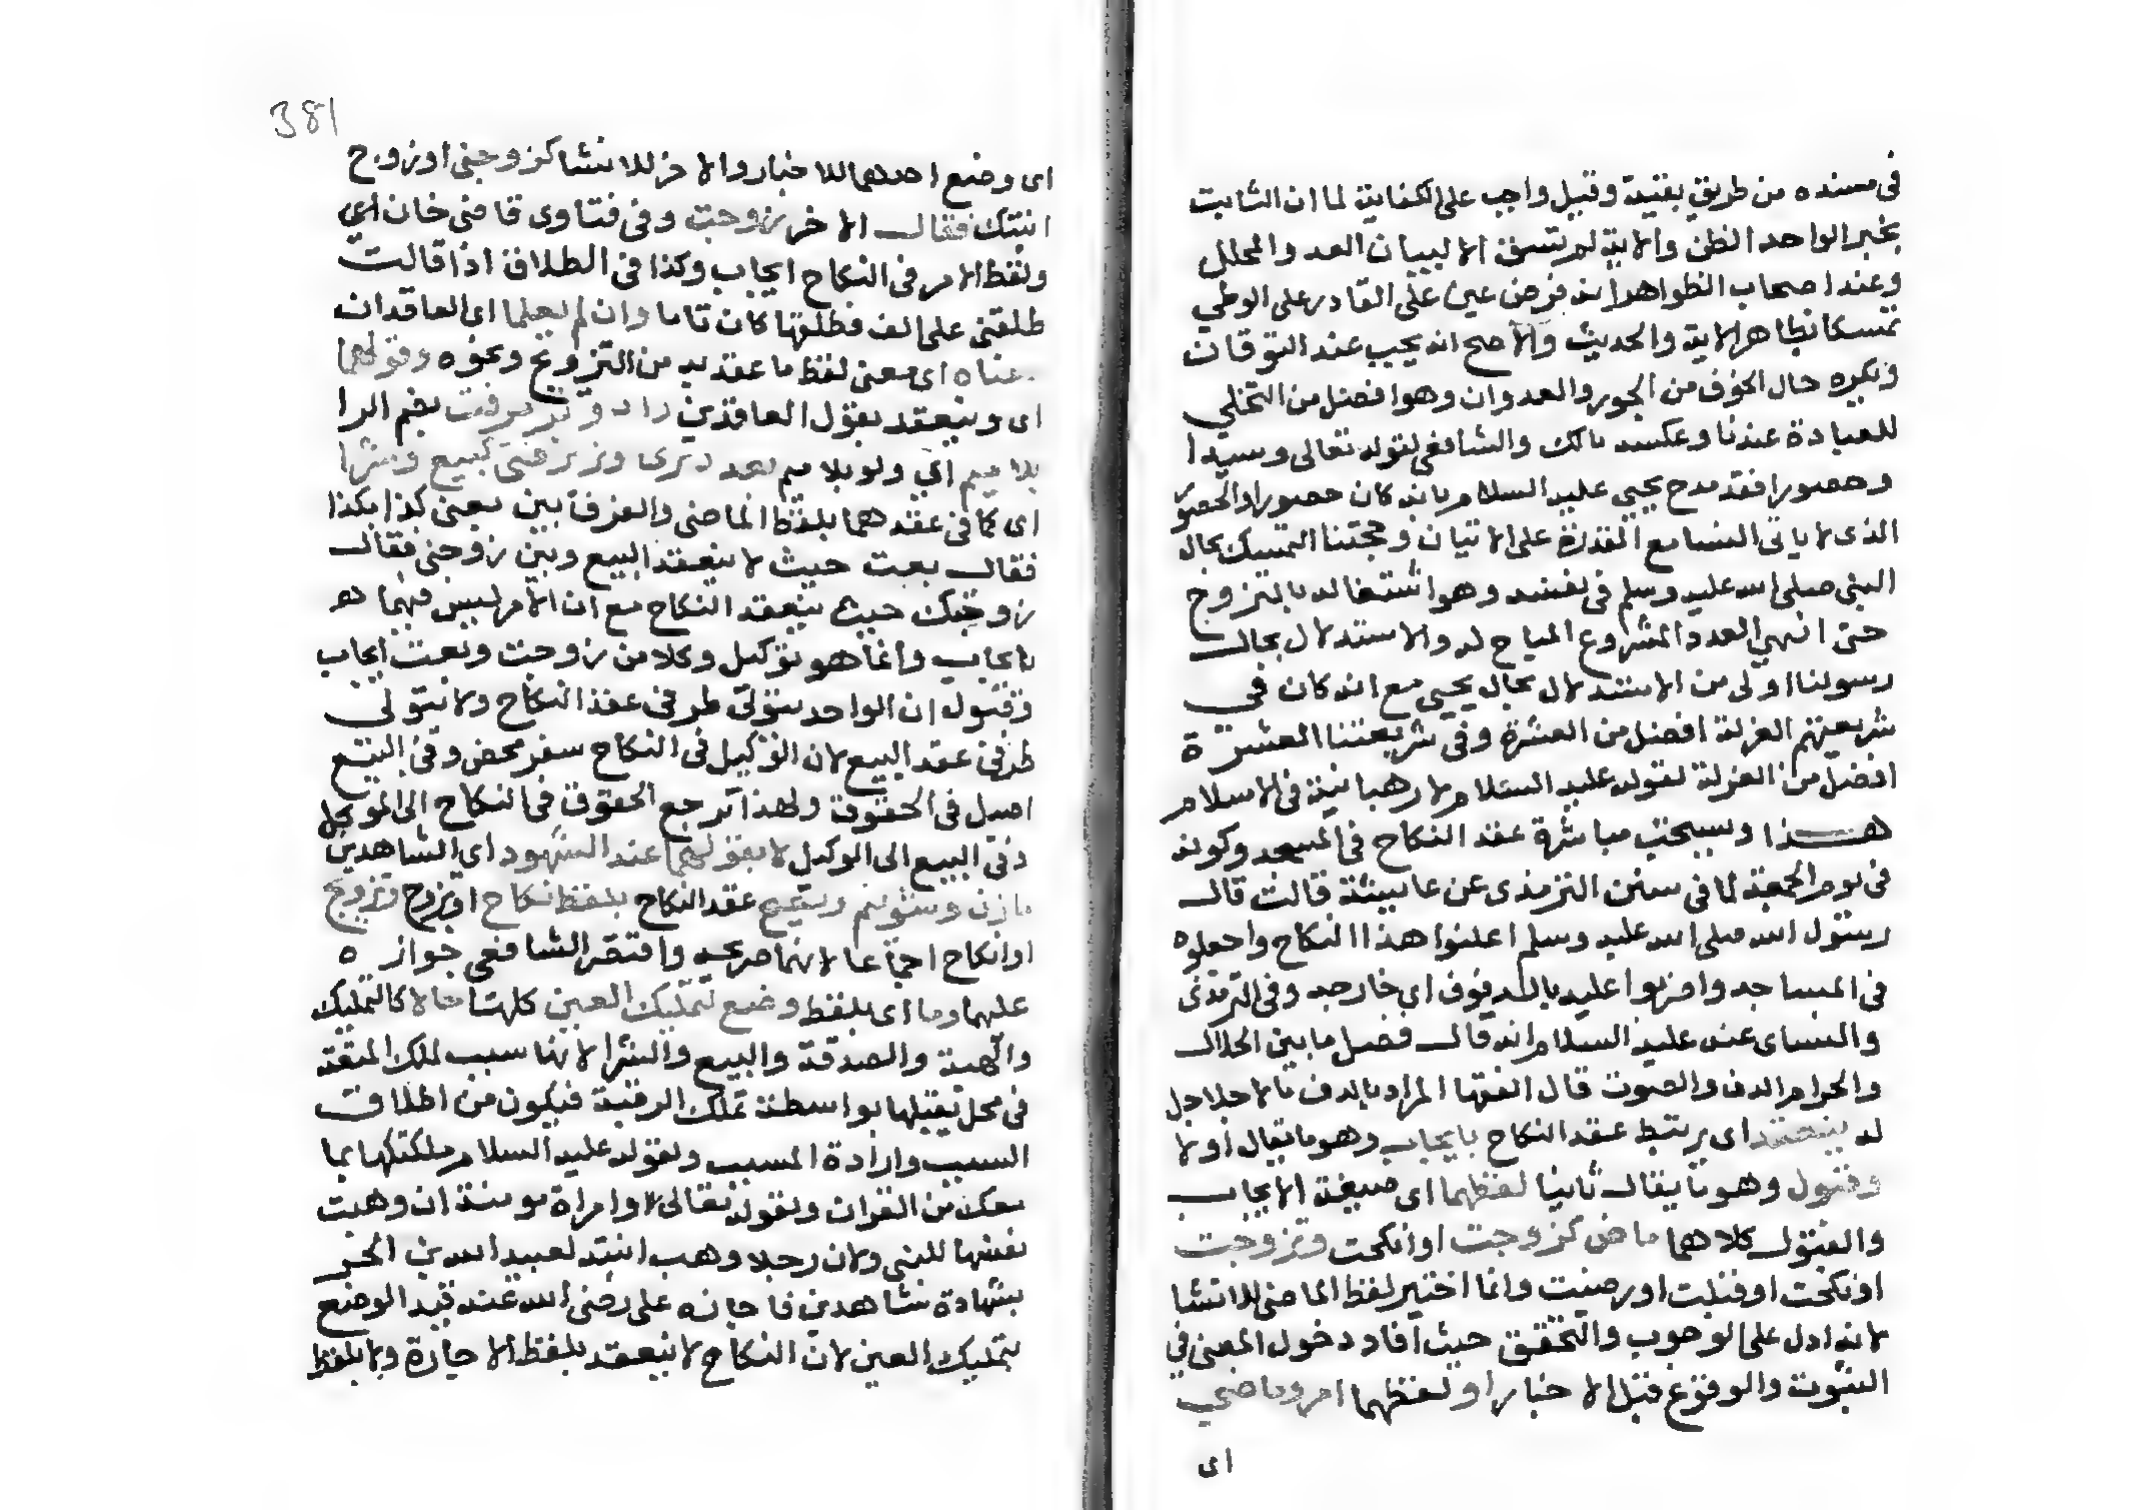 في مسنده من طريق بقية وقيل واجب على الكفاية لما ان الثابت
بخبر الواحد الظن والاية لم تسق الا لبيان العدد المحلل
وعند اصحاب الظواهر انه فرض عين على القادر على الوطي
تمسكا بظاهر الاية والحديث والاصح انه يجب عند التوقان
ويكره حال الخوف من الجور والعدوان وهو افضل من التخلي
للعبادة عندنا وعكسه مالك والشافعي لقوله تعالى وسيدا
وحصورا فقد مدح يحيى عليه السلام بانه كان حصورا والحصور
الذى لا ياتى النسا مع القدرة على الاتيان وحجتنا التمسك بحال
النبي صلى الله عليه وسلم في نفسه وهو اشتغاله بالتزوج
حتى انتهى العدد المشروع المباح له والاستدلال بحالـ
رسولنا اولى من الاستدلال بحال يحيى مع انه كان في
شريعتهم العزلة افضل من العشرة وفى شريعتنا العشرة
افضل من العزلة لقوله عليه السلام لا رهبانية في الاسلام
هذا ويستحب مباشرة عقد النكاح في المسجد وكونه
في يوم الجمعة لما في سنن الترمذى عن عايشة قالت قال
رسول الله صلى الله عليه وسلم اعلنوا هذا النكاح واجعلوه
في المساجد واضربوا عليه بالدفوف اي خارجه وفى الترمذى
والنساى عنه عليه السلام انه قال فصل ما بين الحلال
والحرام الدف والصوت قال الفقها المراد بالدف ما لا جلاجل
له ينعقد اى يرتبط عقد النكاح بايجاب وهو ما يقال اولا
وقبول وهو ما يقال ثانيا لفظهما اى صيغة الايجاب
والقبول كلاهما ماض كزوجت او انكحت وتزوجت
او نكحت او قبلت او رضيت وانما اختير لفظ الماضى للانشا
لانه ادل على الوجوب والتحقق حيث افاد دخول المعنى في
الثبوت والوقوع قبل الاخبار او لفظهما امر وماضي
اى
381
اى وضع احدهما للاخبار والاخر للانشا كزوجنى او زوج
ابنتك فقال الاخر زوجت وفى فتاوى قاضى خان اي
ولفظ الامر في النكاح ايجاب وكذا فى الطلاق اذا قالت
طلقنى على الف فطلقها كان تاما وان لم يعلما اى العاقدان
معناه اى معنى لفظ ما عقد به من التزوج ونحوه وقولهما
اى وينعقد بقول العاقدين داد و پذيرفت بضم الرا
بلا ميم اي ولو بلا ميم بعد دىرى وزيرفتى كبيع وشرا
اى كما في عقدهما بلفظ الماضى والفرق بين بعنى كذا بكذا
فقال بعت حيث لا ينعقد البيع وبين زوجنى فقال
زوجتك حيث ينعقد النكاح مع ان الامر ليس فيهما هو
بايجاب وانما هو توكيل وكلا من زوجت وبعت ايجاب
وقبول ان الواحد يتولى طرفى عقد النكاح ولا يتولى
طرفى عقد البيع لان الوكيل فى النكاح سفير محض وفى البيع
اصيل فى الحقوق ولهذا ترجع الحقوق في النكاح الى الموكل
وفى البيع الى الوكيل لا بقولهما عند الشهود اى الشاهدين
مازن وشوييم ويصح عقد النكاح بلفظ نكاح او تزوج وتزويج
او انكاح اجماعا لانهما صريحه واقتصر الشافعى جوازه
عليهما وما اى بلفظ وضع لتمليك العين كلها حالا كالتمليك
والهبة والصدقة والبيع والشرا لانها سبب لملك المتعة
في محل يقبلها بواسطة تملك الرقبة فيكون من اطلاق
السبب وارادة المسبب ولقوله عليه السلام ملكتكها بما
معك من القران ولقوله تعالى وامراة مومنة ان وهبت
نفسها للنبى ولان رجلا وهب ابنته لعبيد الله بن الحر
بشهادة شاهدين فاجازه على رضى الله عنه قيد الوضع
بتمليك العين لان النكاح لا ينعقد بلفظ الاجارة ولا بلفظ